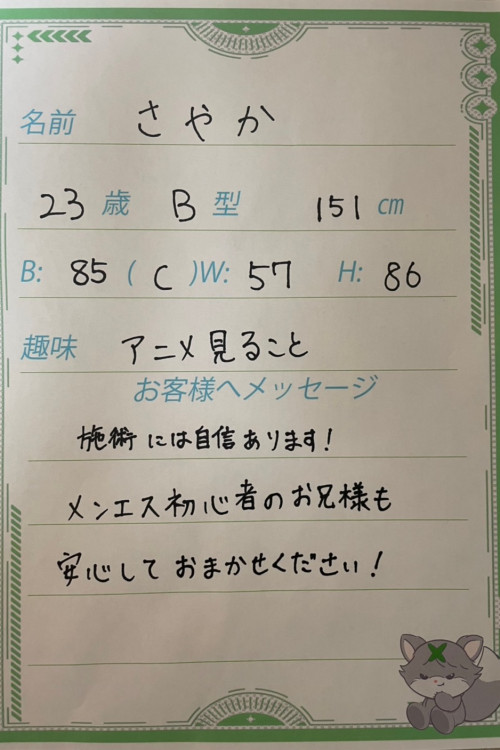 名前 さやか
23 歳 B 型 151 cm
B: 85 ( C )W: 57 H: 86
趣味 アニメ見ること
お客様へメッセージ
施術には自信あります!
メンエス初心者のお兄様も
安心しておまかせください!